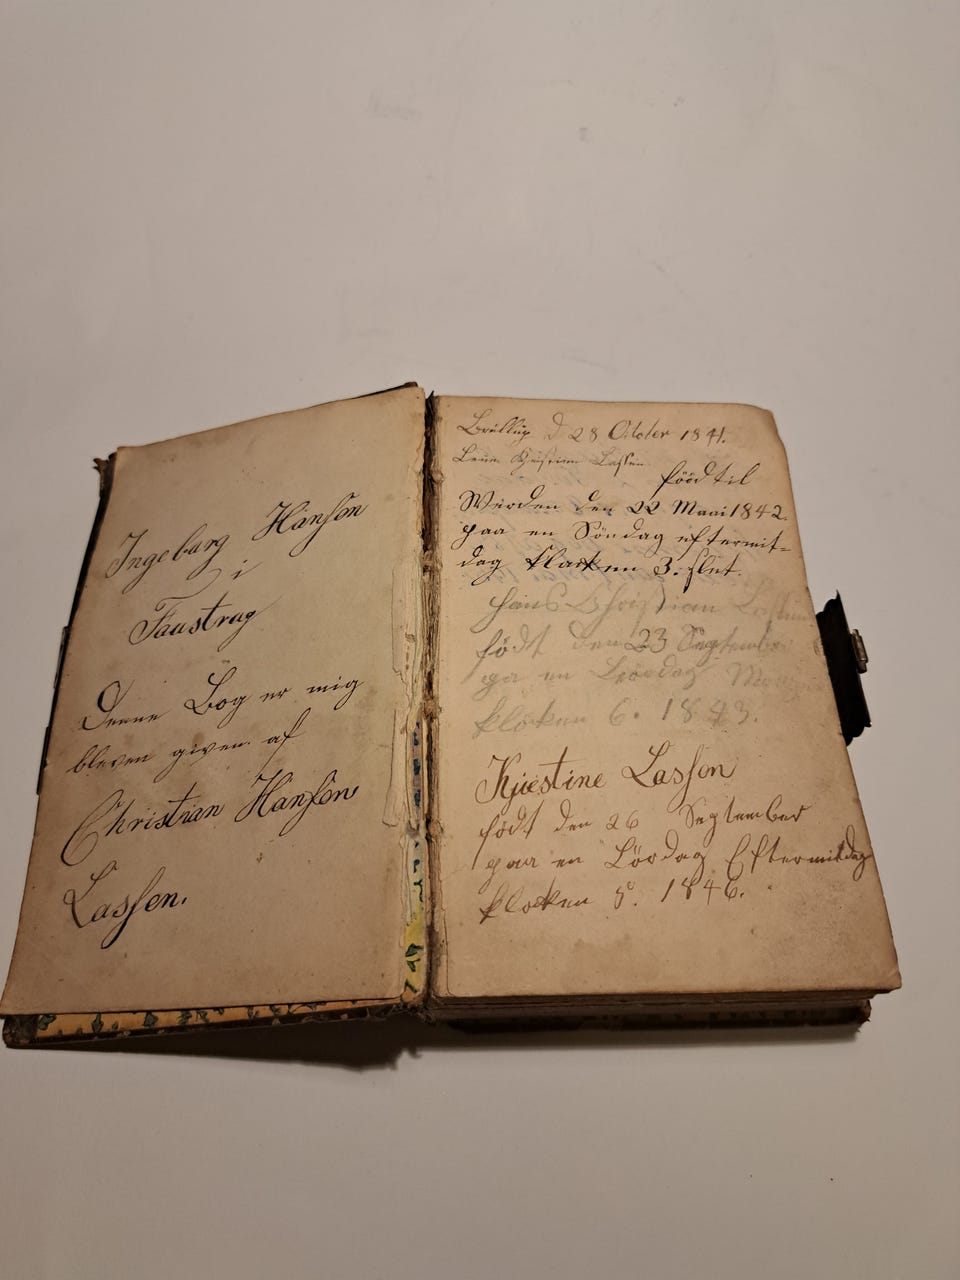 Ingeborg Hansen
i
Faustrup
Denne Bog er mig
bleven given af
Christian Hansen
Lassen.
Bryllup d 28 October 1841.
Kjestine Lassen
föödtil
Werden den 22 Maai 1842.
paa en Söndag eftermit-
dag klocken 3. slet.
Hans Christian Lassen
födt den 23 September
pa en Löördag
klocken 6. 1843.
Kjiestine Lassen
födt den 26 September
paa en Lördag Eftermiddag
klocken 5. 1846.